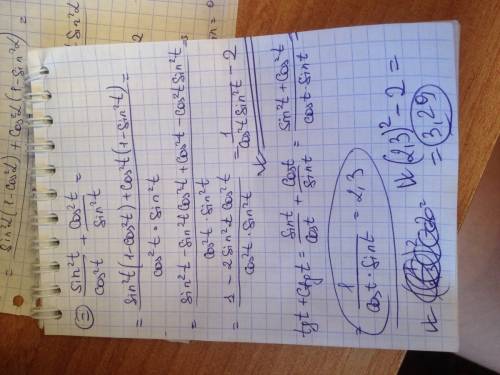 = sin²t(1-cos²t) + cos²t(1-sin²t) =
⊜ sin²t/cos²t + cos²t/sin²t =
= (sin²t(1-cos²t) + cos²t(1-sin²t))/(cos²t · sin²t) =
= (sin²t - sin²t cos²t + cos²t - cos²t sin²t)/(cos²t · sin²t) =
= (1 - 2sin²t cos²t)/(cos²t · sin²t) = 1/(cos²t sin²t) - 2
tgt + ctgt = sint/cost + cost/sint = (sin²t + cos²t)/(cost · sint) =
= 1/(cost · sint) = 2,3
(2,3)² - 2 =
= 3,29